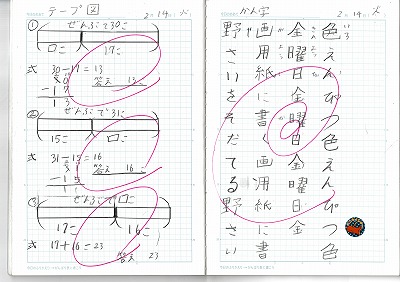 テープ図
2 14 火
①
ぜんぶで30こ
□こ 17こ
式 30-17=13
答え 13
30
-17
13
②
ぜんぶで31こ
15こ □こ
式 31-15=16
答え 16
31
-15
16
③
ぜんぶで□こ
17こ 16こ
式 17+16=23
答え 23
かん字
2 14 火
色えんぴつ色えんぴつ色
金曜日金曜日金曜日
画用紙に書く画用紙に書
野さいをそだてる野さい